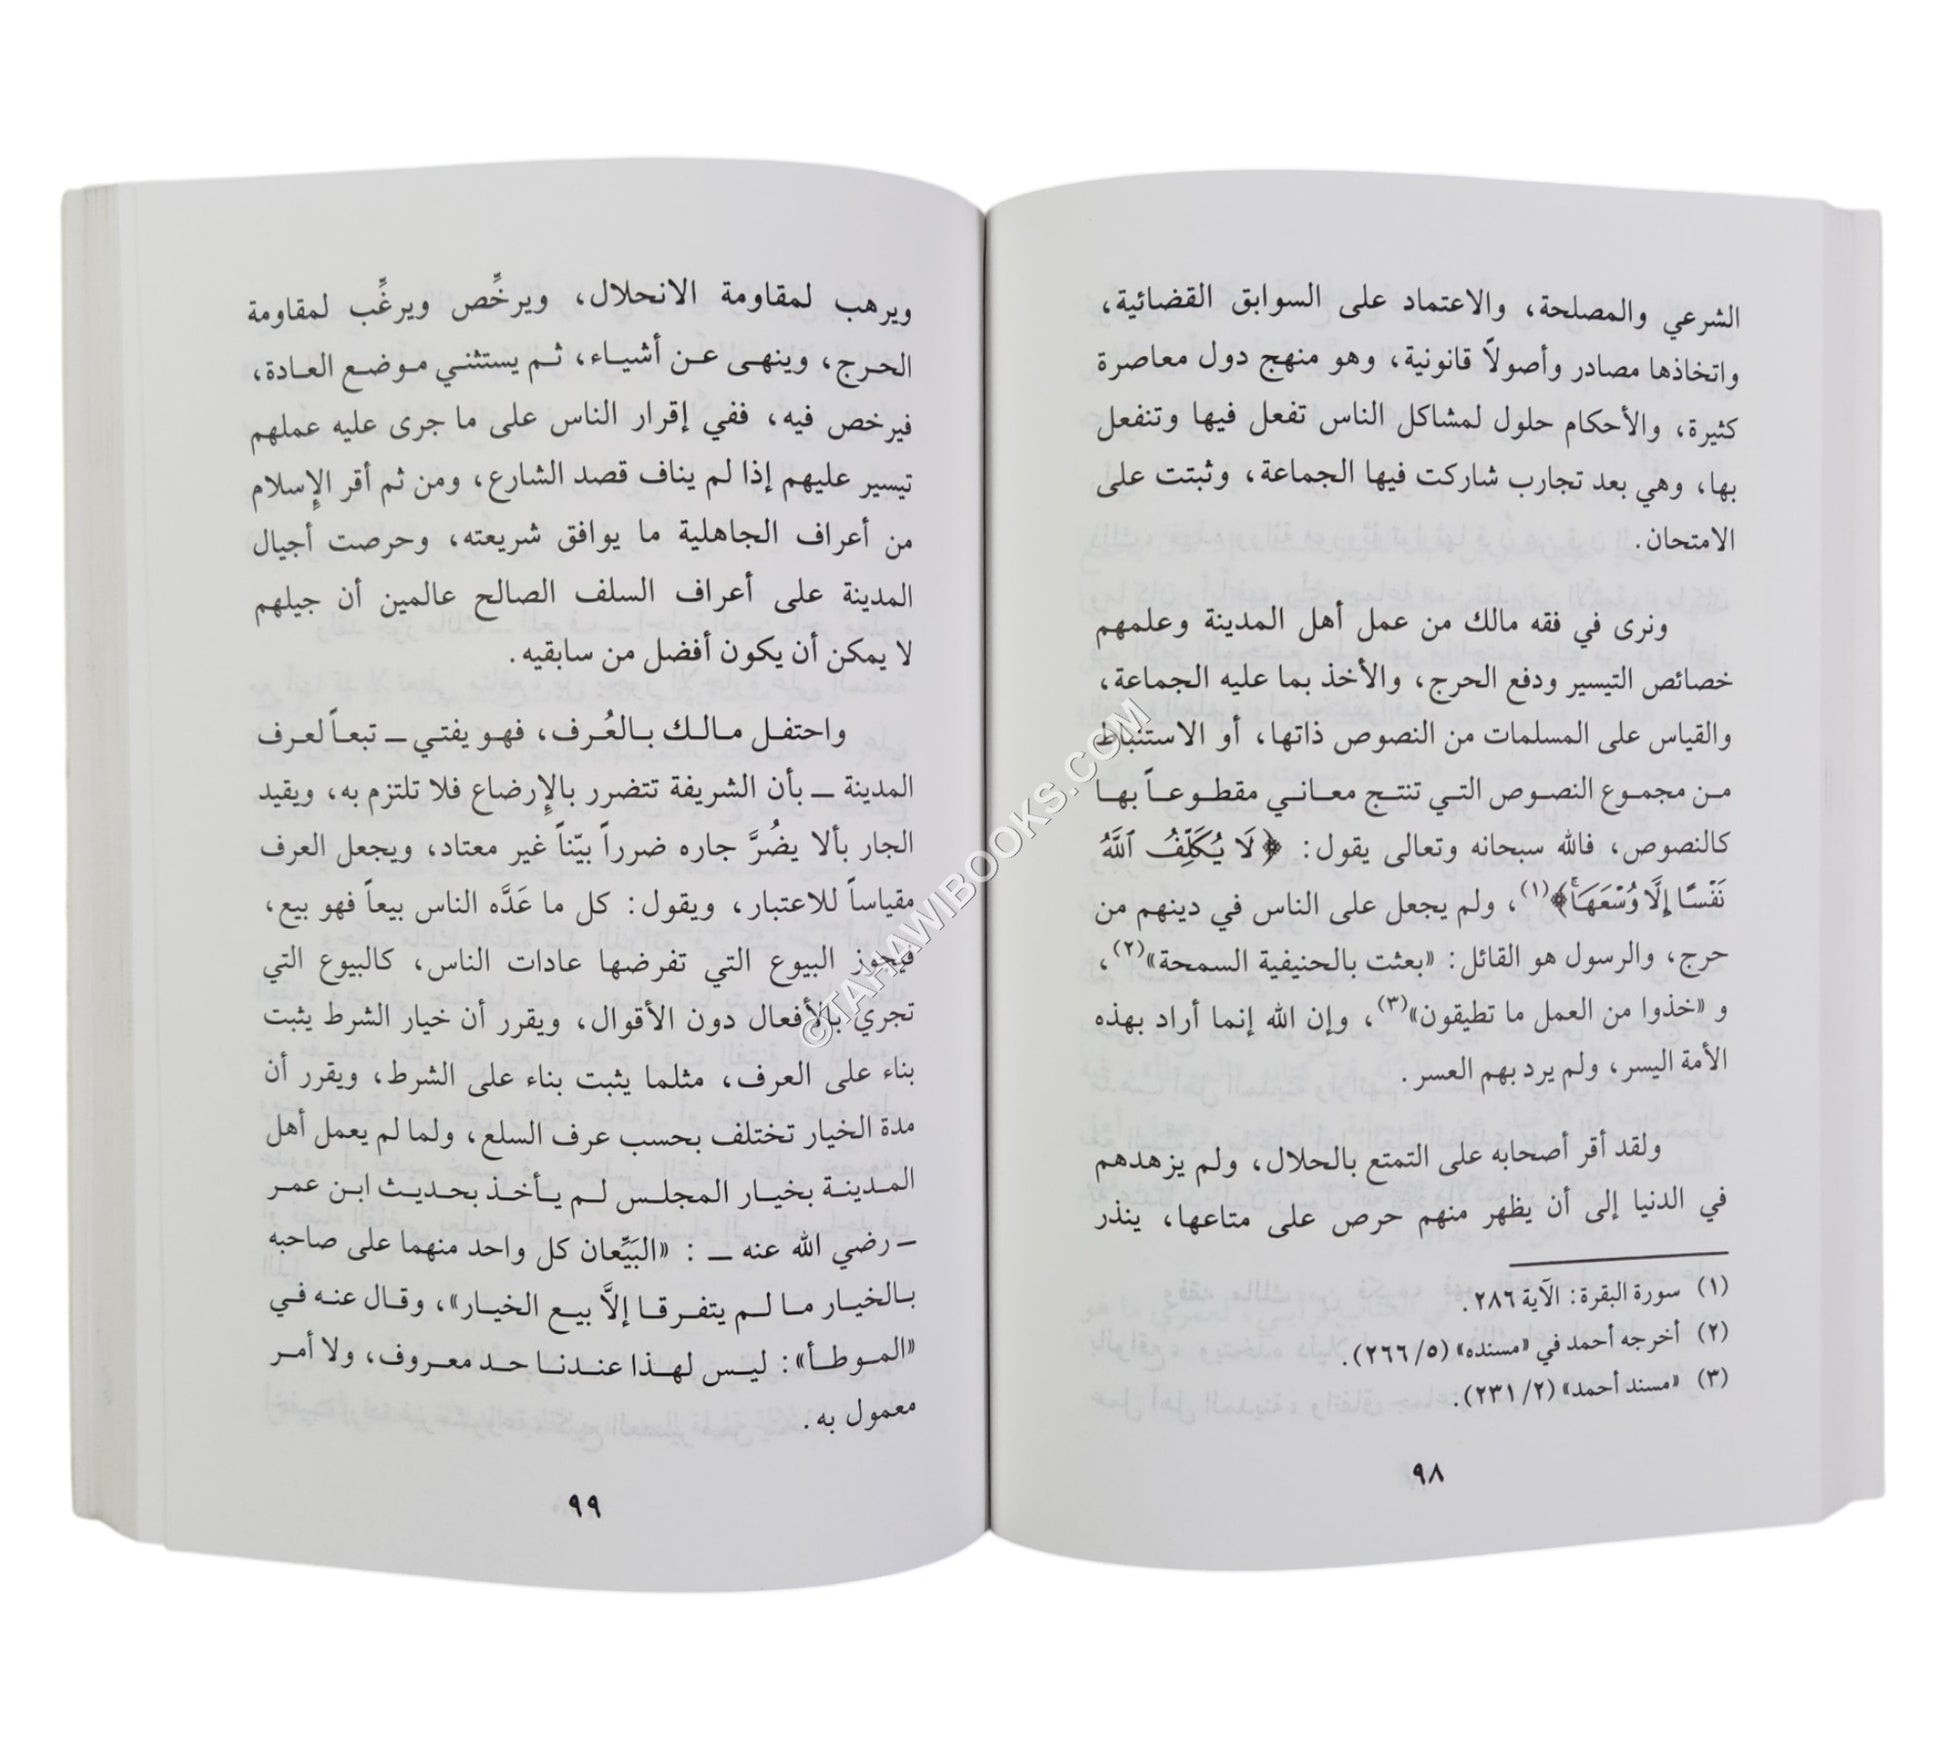 الشرعي والمصلحة، والاعتماد على السوابق القضائية،
واتخاذها مصادر وأصولاً قانونية، وهو منهج دول معاصرة
كثيرة، والأحكام حلول لمشاكل الناس تفعل فيها وتنفعل
بها، وهي بعد تجارب شاركت فيها الجماعة، وثبتت على
الامتحان.
ونرى في فقه مالك من عمل أهل المدينة وعلمهم
خصائص التيسير ودفع الحرج، والأخذ بما عليه الجماعة،
والقياس على المسلمات من النصوص ذاتها، أو الاستنباط
من مجموع النصوص التي تنتج معاني مقطوعاً بها
كالنصوص، فالله سبحانه وتعالى يقول: ﴿لَا يُكَلِّفُ ٱللَّهُ
نَفْسًا إِلَّا وُسْعَهَا﴾(١)، ولم يجعل على الناس في دينهم من
حرج، والرسول هو القائل: «بعثت بالحنيفية السمحة»(٢)،
و «خذوا من العمل ما تطيقون»(٣)، وإن الله إنما أراد بهذه
الأمة اليسر، ولم يرد بهم العسر.
ولقد أقر أصحابه على التمتع بالحلال، ولم يزهدهم
في الدنيا إلى أن يظهر منهم حرص على متاعها، ينذر
(١) سورة البقرة: الآية ٢٨٦.
(٢) أخرجه أحمد في «مسنده» (٥/٢٦٦).
(٣) «مسند أحمد» (٢/٢٣١).
٩٨
ويرهب لمقاومة الانحلال، ويرخِّص ويرغِّب لمقاومة
الحرج، وينهى عن أشياء، ثم يستثني موضع العادة،
فيرخص فيه، ففي إقرار الناس على ما جرى عليه عملهم
تيسير عليهم إذا لم يناف قصد الشارع، ومن ثم أقر الإسلام
من أعراف الجاهلية ما يوافق شريعته، وحرصت أجيال
المدينة على أعراف السلف الصالح عالمين أن جيلهم
لا يمكن أن يكون أفضل من سابقيه.
واحتفل مالك بالعُرف، فهو يفتي ــ تبعاً لعرف
المدينة ــ بأن الشريفة تتضرر بالإرضاع فلا تلتزم به، ويقيد
الجار بألا يضُرَّ جاره ضرراً بيّناً غير معتاد، ويجعل العرف
مقياساً للاعتبار، ويقول: كل ما عَدَّه الناس بيعاً فهو بيع،
فيجوز البيوع التي تفرضها عادات الناس، كالبيوع التي
تجري بالأفعال دون الأقوال، ويقرر أن خيار الشرط يثبت
بناء على العرف، مثلما يثبت بناء على الشرط، ويقرر أن
مدة الخيار تختلف بحسب عرف السلع، ولما لم يعمل أهل
المدينة بخيار المجلس لم يأخذ بحديث ابن عمر
ــ رضي الله عنه ــ : «البَيِّعان كل واحد منهما على صاحبه
بالخيار ما لم يتفرقا إلاَّ بيع الخيار»، وقال عنه في
«الموطأ»: ليس لهذا عندنا حد معروف، ولا أمر
معمول به.
٩٩
©TAHAWIBOOKS.COM